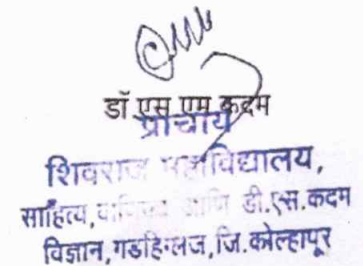 डॉ एस एम कदम
प्राचार्य
शिवराज महाविद्यालय,
साहित्य, वाणिज्य आणि डी.एस.कदम
विज्ञान, गडहिंग्लज, जि.कोल्हापूर